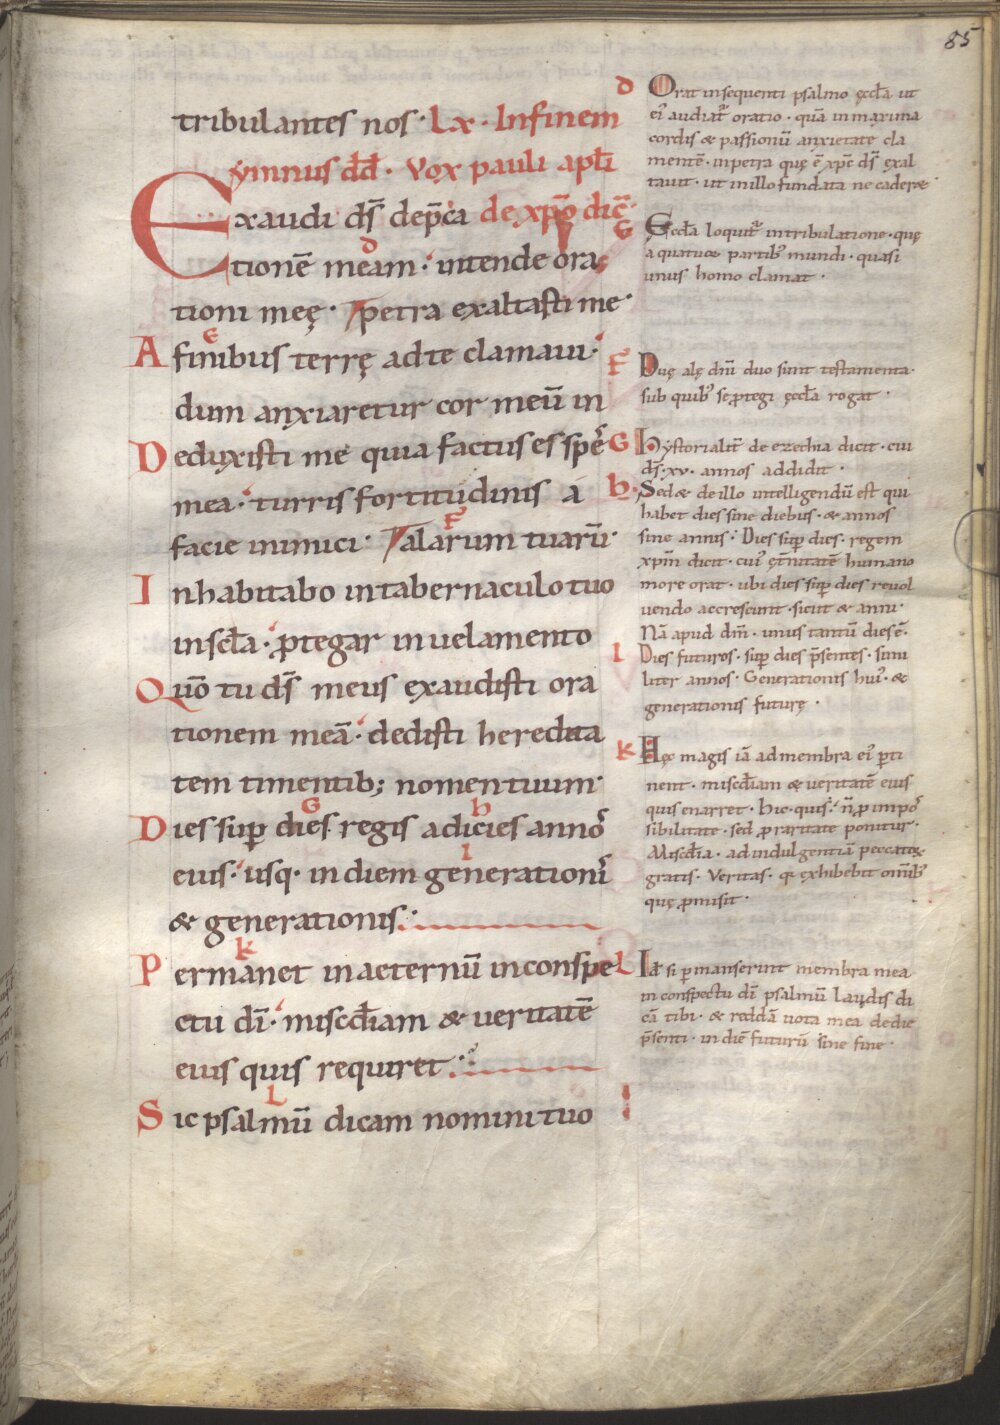 85
tribulantes nos · Lx · In finem
ymnus dd̄ · Vox pauli apl̄i
Exaudi ds̄ dep̄ca de xp̄o dic̄ ·
tionē meam · intende ora
tioni meę · petra exaltasti me ·
A finibus terrę ad te clamaui ·
dum anxiaretur cor meū in
Deduxisti me quia factus es spē
mea · turris fortitudinis a
facie inimici · alarum tuarū ·
Inhabitabo in tabernaculo tuo
in scl̄a · ꝓtegar in uelamento
Quō tu ds̄ meus exaudisti ora
tionem meā · dedisti heredita
tem timentib; nomen tuum ·
Dies sup̄ dies regis adicies anno᷒
eius · usq · in diem generationi᷒
& generationis ·
Permanet in aeternū in conspe
ctu dī · miscd̄iam & veritatē
eius quis requiret ·
Sic psalmū dicam nomini tuo
d Orat in sequenti psalmo ęccl̄a ut
ei᷒ audiat᷒ oratio · quā in maxima
cordis & passionū anxietate cla
mentē · in petra quę ē xp̄c ds̄ exal
tauit · ut in illo fundata ne caderet ·
E Eccl̄a loquit᷒ in tribulatione · quę
a quatuor partib᷒ mundi · quasi
unus homo clamat ·
F Duę alę dn̄i duo sunt testamenta ·
sub quib᷒ se ꝓtegi ęccl̄a rogat ·
G Hystorialit̄ de ezechia dicit · cui
ds̄ · xv · annos addidit ·
h Sed & de illo intelligendū est qui
habet dies sine diebus · & annos
sine annis · Dies sup̄ dies · regem
xpm̄ dicit · cui᷒ ęt̄nitatē humano
more orat · ubi dies sup̄ dies reuol
uendo accrescunt · sicut & anni ·
Nā apud dm̄ · unus tantū dies ē ·
I Dies futuros · sup̄ dies p̄sentes · simi
liter annos · Generationis hui᷒ · &
generationis futurę ·
K Hęc magis iā ad membra ei᷒ ꝑti
nent · miscd̄iam & veritatē eius
quis enarret · hic · quis · n̄ ꝓ impos
sibilitate · sed ꝓ raritate ponitur ·
Miscd̄ia · ad indulgentiā peccatoꝝ
gratis · Veritas · q exhibebit omīb᷒
quę ꝓmisit ·
L Id̄ si ꝑmanserint membra mea
in conspectu dī psalmū laudis di
cā tibi · & reddā uota mea de die
p̄senti · in diē futurū sine fine ·